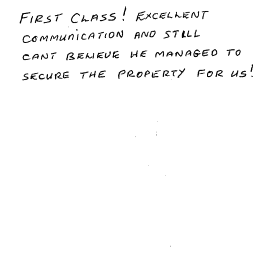 FIRST CLASS! EXCELLENT
COMMUNICATION AND STILL
CANT BELIEVE HE MANAGED TO
SECURE THE PROPERTY FOR US!